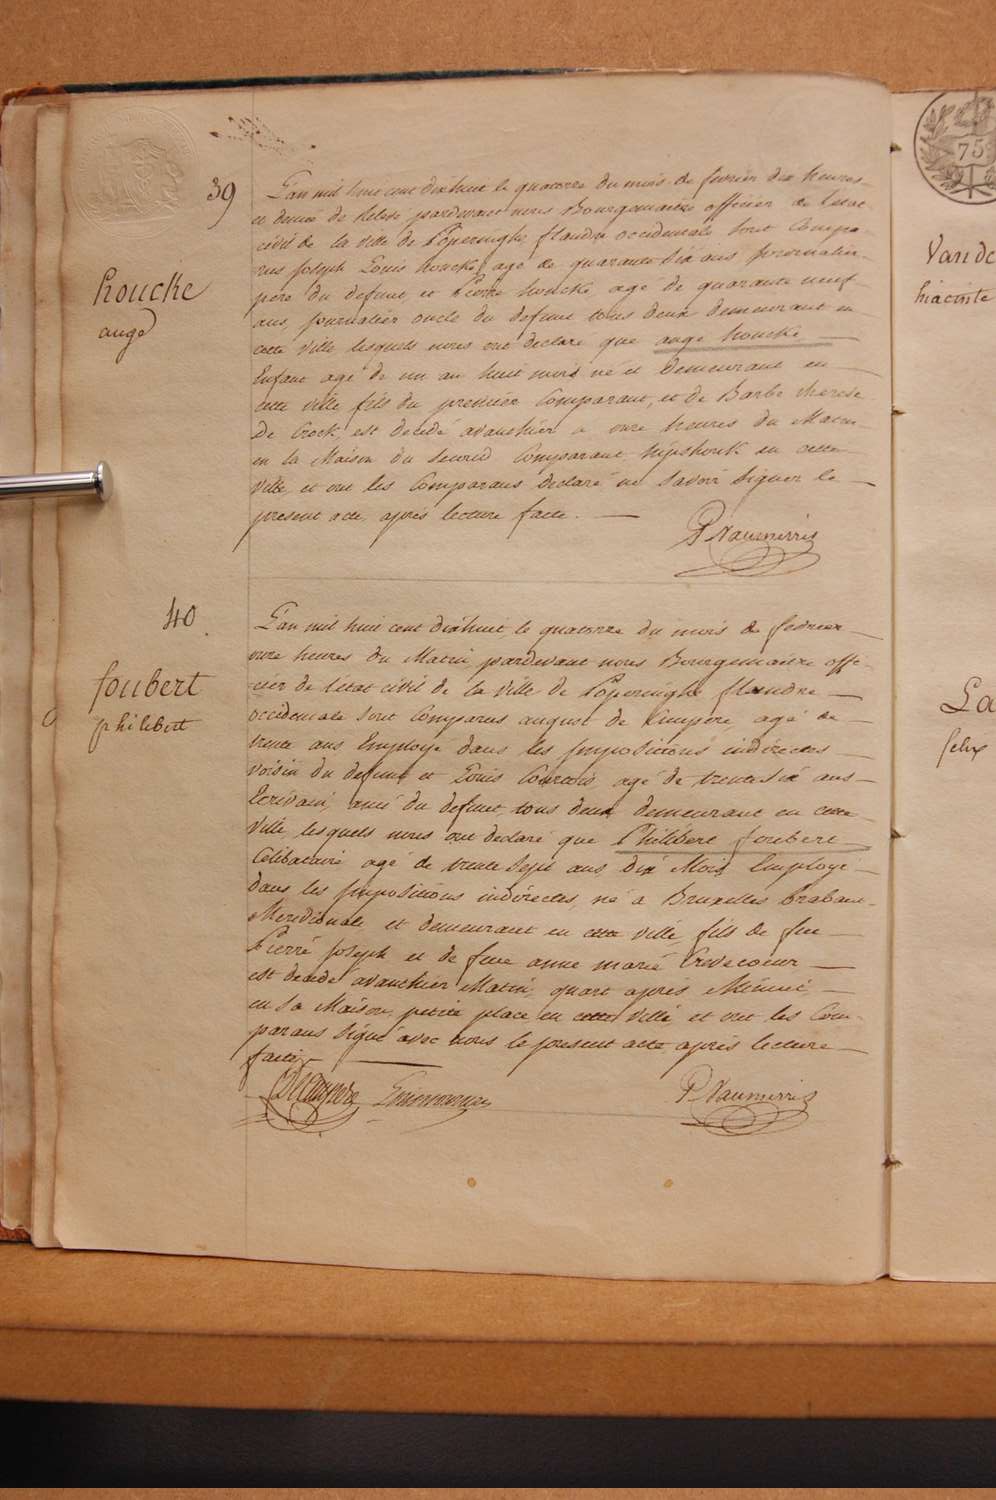 39
houcke
ange
L'an mil huit cent dixhuit le quatorze du mois de fevrier dix heures
et demie de relevé pardevant nous Bourgemaitre officier de l'etat
civil de la ville de Poperinghe, flandre occidentale sont Compa-
rus joseph Louis houcke, agé de quarante six ans journalier
pere du defunt, et Pierre houcke, agé de quarante neuf
ans, journalier oncle du defunt tous deux demeurant en
cette ville lesquels nous ont declaré que ange houcke
Enfant agé de un an huit mois né et demeurant en
cette ville fils du premier Comparant, et de Barbe therese
De Crock, est decedé avanthier a onze heures du Matin
en la Maison du second Comparant en cette
ville, et ont les Comparans declaré ne savoir signer le
present acte, après lecture faite.
40
foubert
philibert
L'an mil huit cent dixhuit le quatorze du mois de fevrier
onze heures du Matin, pardevant nous Bourgemaitre offi-
cier de l'etat civil de la ville de Poperinghe flandre
occidentale sont Comparus august de Cuupere, agé de
trente ans Employé dans les jmpositions indirectes
voisin du defunt et Louis Courtois, agé de trente six ans
Ecrivain, ami du defunt, tous deux demeurant en cette
ville, lesquels nous ont declaré que Philibert foubert
Celibataire agé de trente sept ans dix Mois Employé
dans les jmpositions indirectes, né à Bruxelles brabant
Meridionale, et demeurant en cette ville, fils de feu
Pierre joseph et de feue anne marie Crevecoeur
est decedé avanthier Matin, quart apres Minuit,
en sa Maison, petite place en cette ville et ont les Com-
parans signé avec nous le present acte, après lecture
faite
75
Vande
hiacinte
La
felix